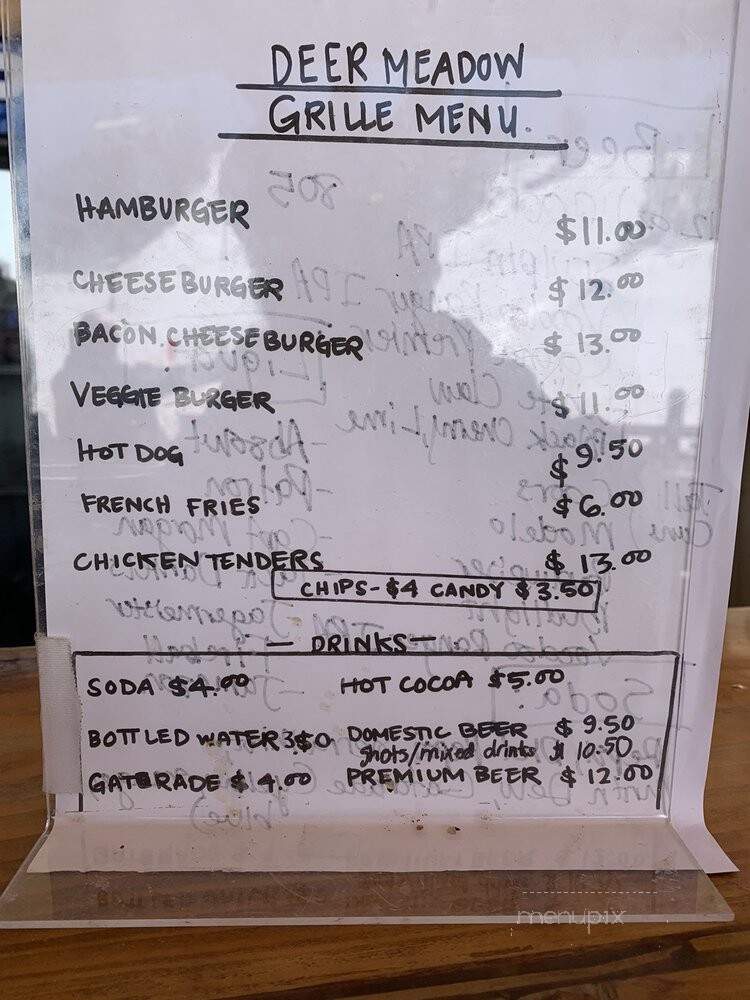 DEER MEADOW
GRILLE MENU.
HAMBURGER $11.00
CHEESEBURGER $12.00
BACON CHEESEBURGER $13.00
VEGGIE BURGER $11.00
HOT DOG $9.50
FRENCH FRIES $6.00
CHICKEN TENDERS $13.00
CHIPS-$4 CANDY $3.50
— DRINKS —
SODA $4.00 HOT COCOA $5.00
BOTTLED WATER DOMESTIC BEER $9.50
shots/mixed drinks $10.50
GATORADE $4.00 PREMIUM BEER $12.00
menupix